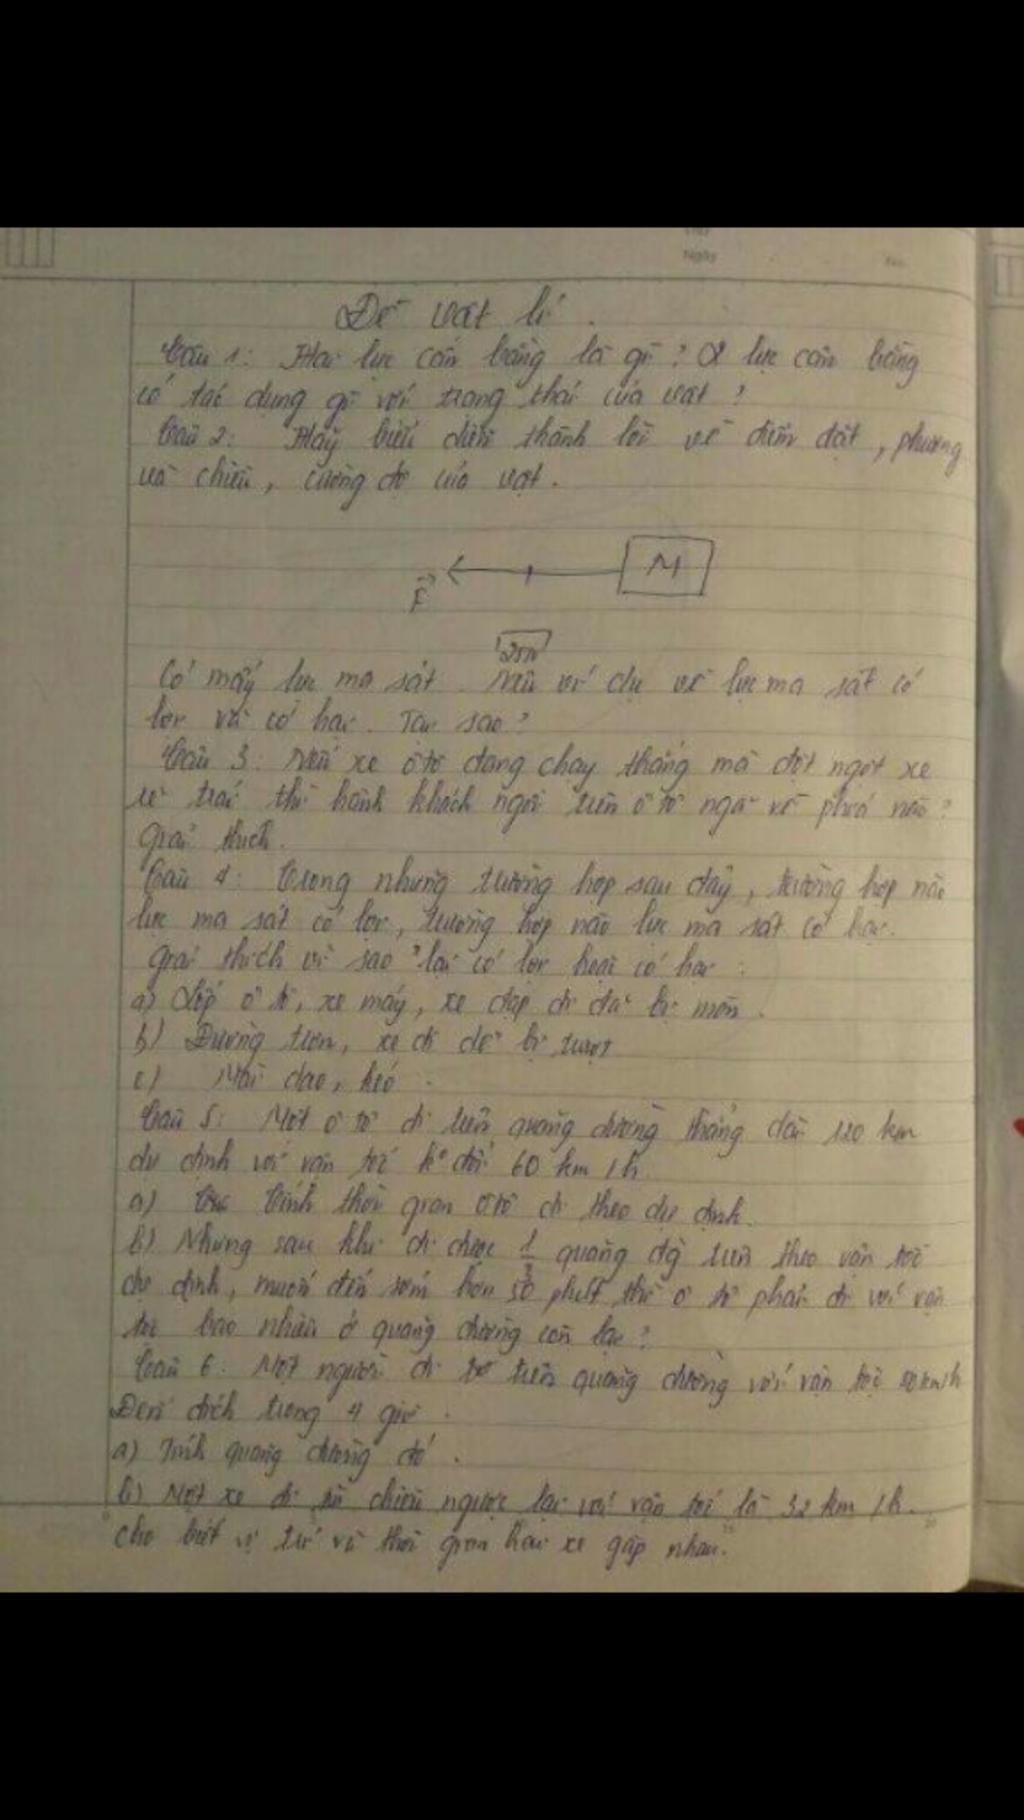 Đề vật lí.
Câu 1: Hai lực cân bằng là gì? 2 lực cân bằng
có tác dụng gì với trạng thái của vật?
Câu 2: Hãy biểu diễn thành lời về điểm đặt, phương
và chiều, cường độ của vật.
M
F
25N
Có mấy lực ma sát. Nêu ví dụ về lực ma sát có
lợi và có hại. Tại sao?
Câu 3: Nếu xe ôtô đang chạy thẳng mà đột ngột xe
rẽ trái thì hành khách ngồi trên ô tô ngã về phía nào?
Giải thích.
Câu 4: Trong những trường hợp sau đây, trường hợp nào
lực ma sát có lợi, trường hợp nào lực ma sát có hại.
Giải thích vì sao lại có lợi hoặc có hại:
a) Lốp ô tô, xe máy, xe đạp đi đã bị mòn.
b) Đường trơn, xe đi dễ bị trượt
c) Mài dao, kéo.
Câu 5: Một ô tô đi trên quãng đường thẳng dài 120 km
dự định với vận tốc k° đổi 60 km/h.
a) Tính thời gian ôtô đi theo dự định.
b) Nhưng sau khi đi được quãng đg trên theo vận tốc
dự định, muốn đến sớm hơn phút thì ô tô phải đi với vận
tốc bao nhiêu ở quãng đường còn lại?
Câu 6: Một người đi trên quãng đường với vận tốc km/h
Đến đích trong 4 giờ.
a) Tính quãng đường đó.
b) Một xe đi từ chiều ngược lại với vận tốc là 32 km/h.
cho biết vị trí và thời gian hai xe gặp nhau.